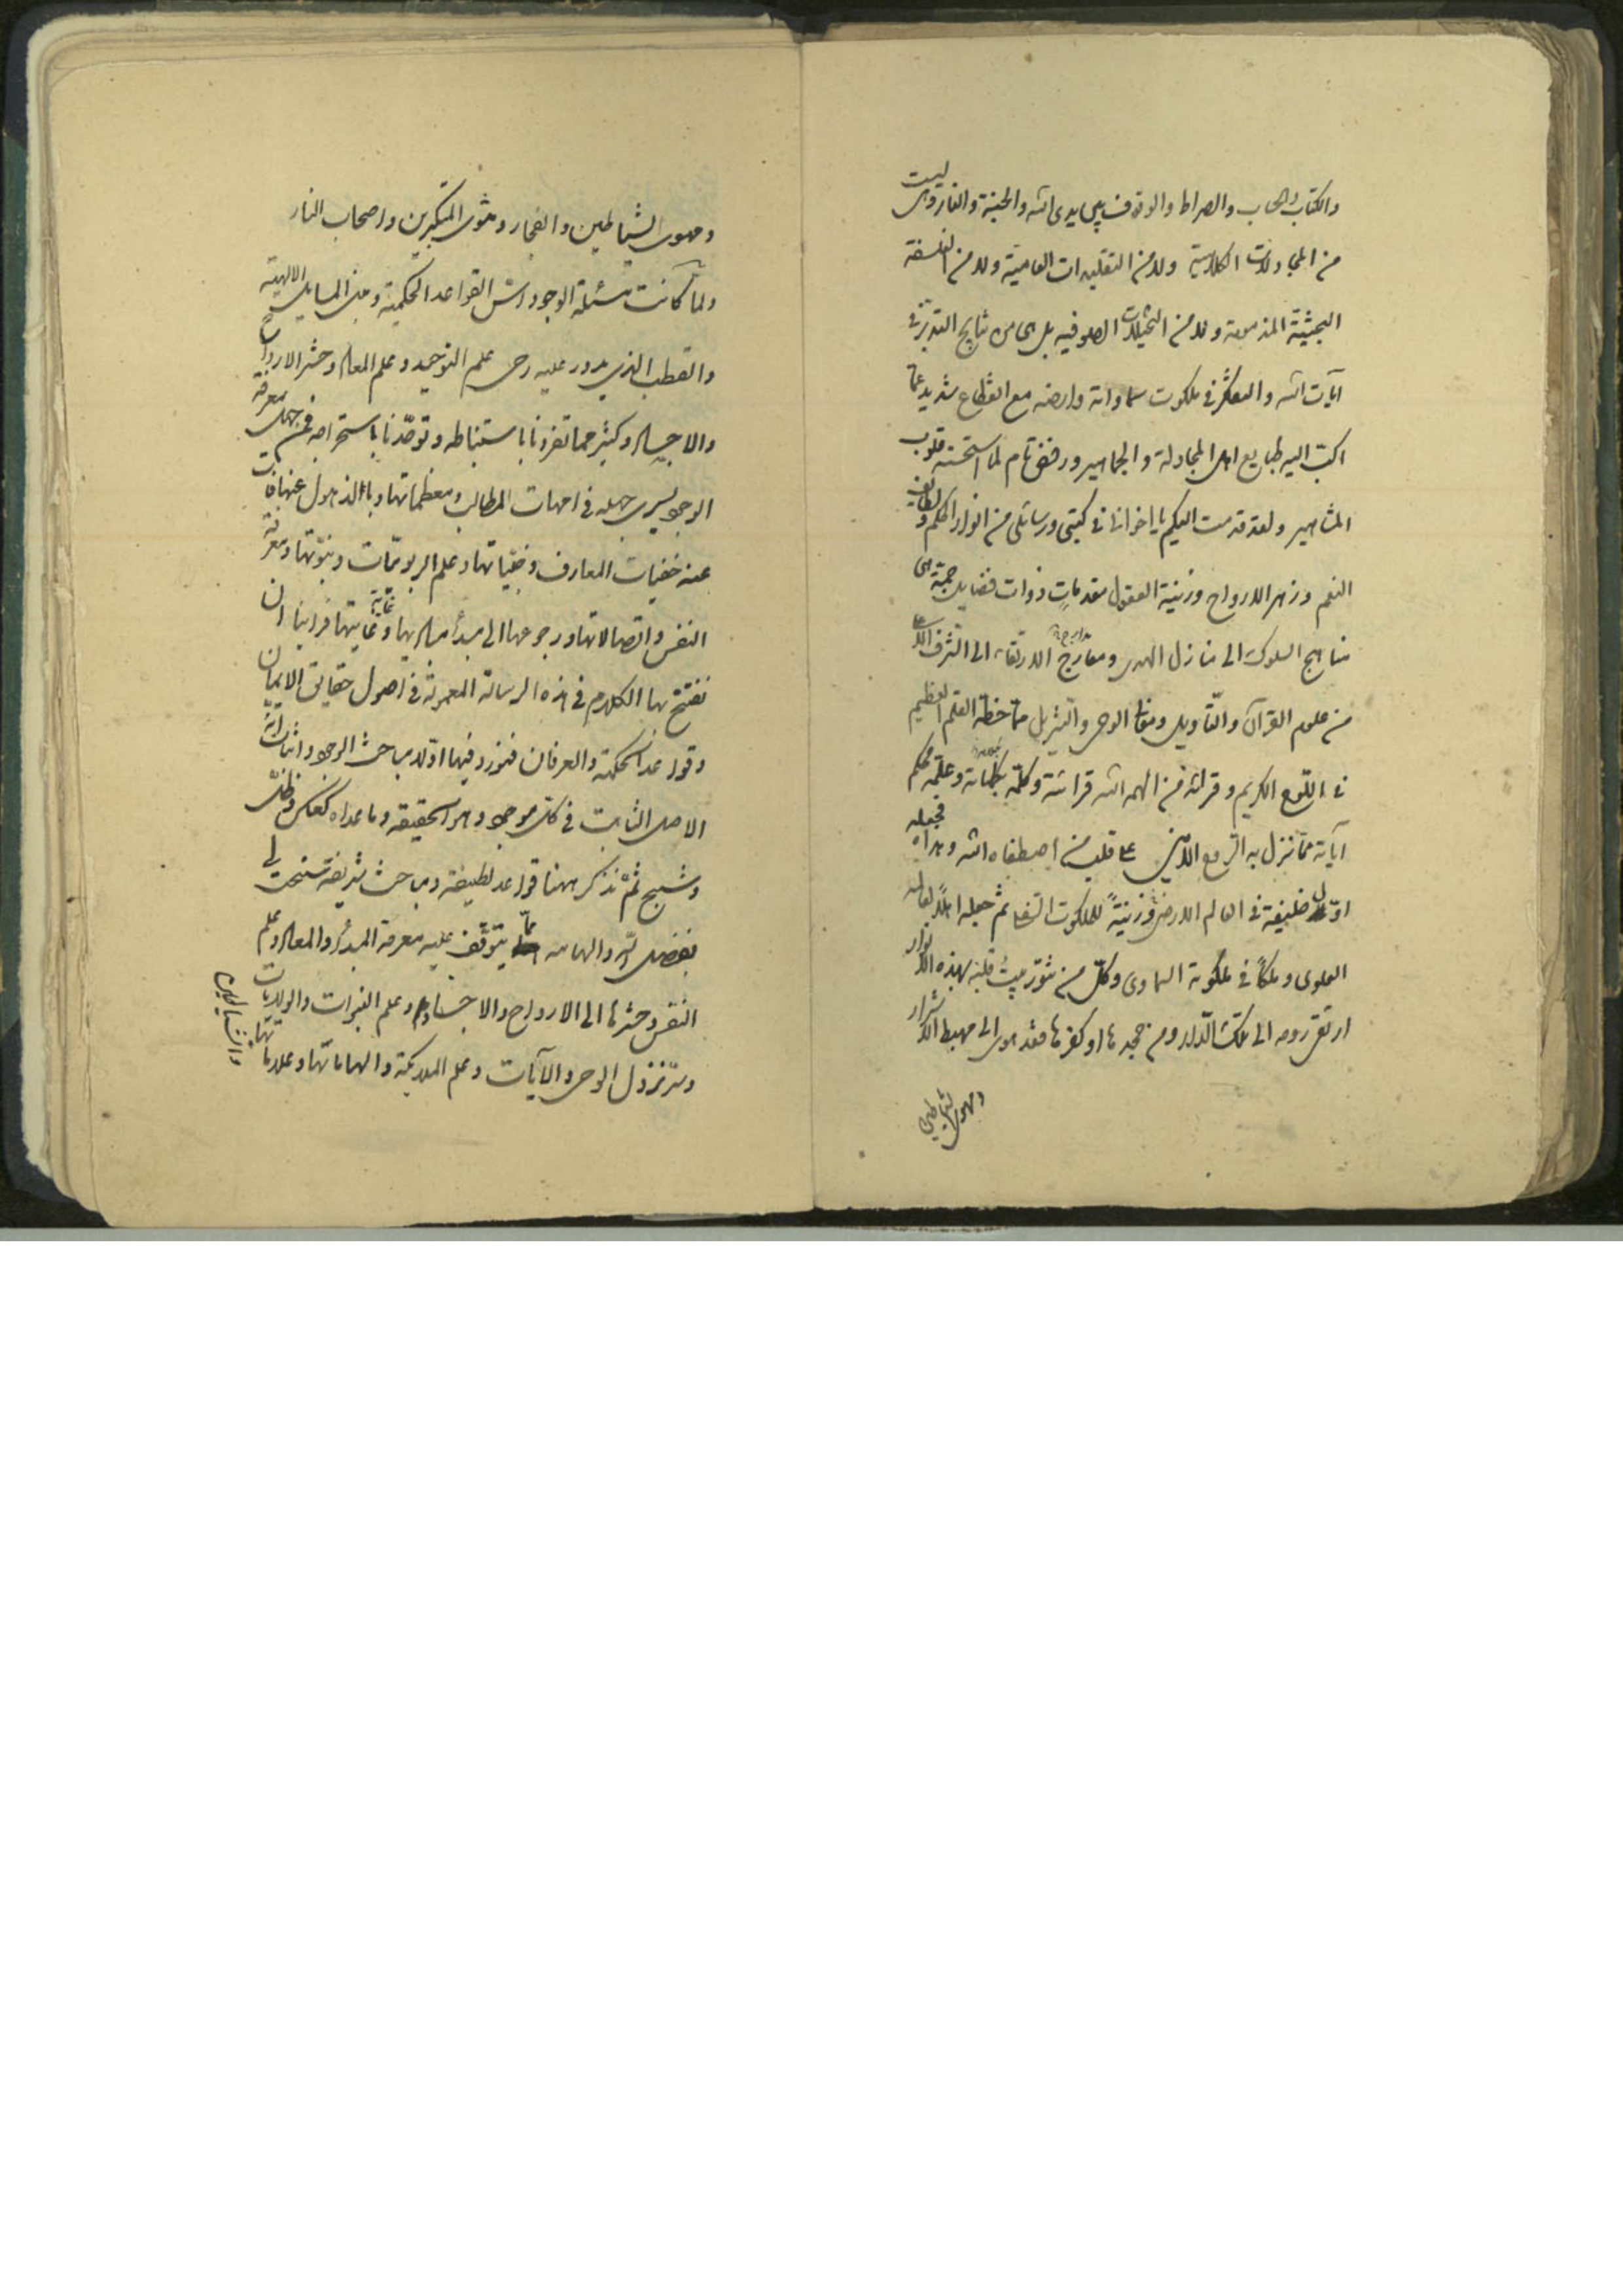 والكتاب والحساب والصراط والوقوف بين يدى الله والجنة والنار وهى ليست
من المجادلات الكلامية ولا من التقليدات العامية ولا من الفلسفة
البحثية المذمومة ولا من التخيلات الصوفية بل هى من نتايج التدبر فى
آيات الله والتفكر فى ملكوت سماواته وارضه مع انقطاع شديد عما
اكب اليه طبايع اهل المجادلة والجماهير ورفض تام لما استحسنه قلوب
المشاهير ولقد قدمت اليكم يا اخوانى فى كتبى ورسائلى من انوار الحكم ولطايف
النعم وزهر الارواح وزينة العقول مقدمات ذوات فضايل جمة هى
مناهج السلوك الى منازل الهدى ومعارج الارتقاء الى الشرف الاعلى
من علوم القرآن والتأويل ومعانى الوحى والتنزيل مما خطه القلم العظيم
فى اللوح الكريم وقرائه من الهمه الله قرائته وكلمه بكلماته وعلمه محكم
آياته مما نزل به الروح الامين على قلب من اصطفاه الله وهداه فجعله
اولا خليفة فى العالم الارضى وزينة للملكوت السفلى ثم جعله اهلا لعالمه
العلوى وملكا فى ملكوته السماوى وكل من تنور بيت قلبه بهذه الانوار
ارتقى روحه الى تلك الدار ومن جحدها او كفرها فقد هوى الى مهبط الاشرار
ومهوى الشياطين
ومهوى الشياطين والفجار ومثوى المتكبرين واصحاب النار
ولما كانت مسئلة الوجود اس القواعد الحكمية ومبنى المسايل الالهية
والقطب الذى يدور عليه رحى علم التوحيد وعلم المعاد وحشر الارواح
والاجساد وكثير مما تفردنا باستنباطه وتوحدنا باستخراجه فمن جهل بمعرفة
الوجود يسرى جهله فى امهات المطالب ومعظماتها وبالذهول عنها فاتت
عنه خفيات المعارف وخبياتها وعلم الربوبيات ونبوتها ومعرفة
النفس واتصالاتها ورجوعها الى مبدأ مباديها وغايتها فراينا ان
نفتتح بها الكلام فى هذه الرسالة المعمولة فى اصول حقايق الايمان
وقواعد الحكمة والعرفان فنورد فيها اولا مباحث الوجود واثبات انه
الاصل الثابت فى كل موجود وهو الحقيقة وما عداه كعكس وظل
وشبح ثم نذكر ههنا قواعد لطيفة ومباحث شريفة سنحت لى
بفضل الله والهامه مما يتوقف عليه معرفة المبدأ والمعاد وعلم
النفس وحشرها الى الارواح والاجساد وعلم النبوات والولايات
وسر نزول الوحى والآيات وعلم الملائكة والهاماتها وعلاماتها
والشياطين